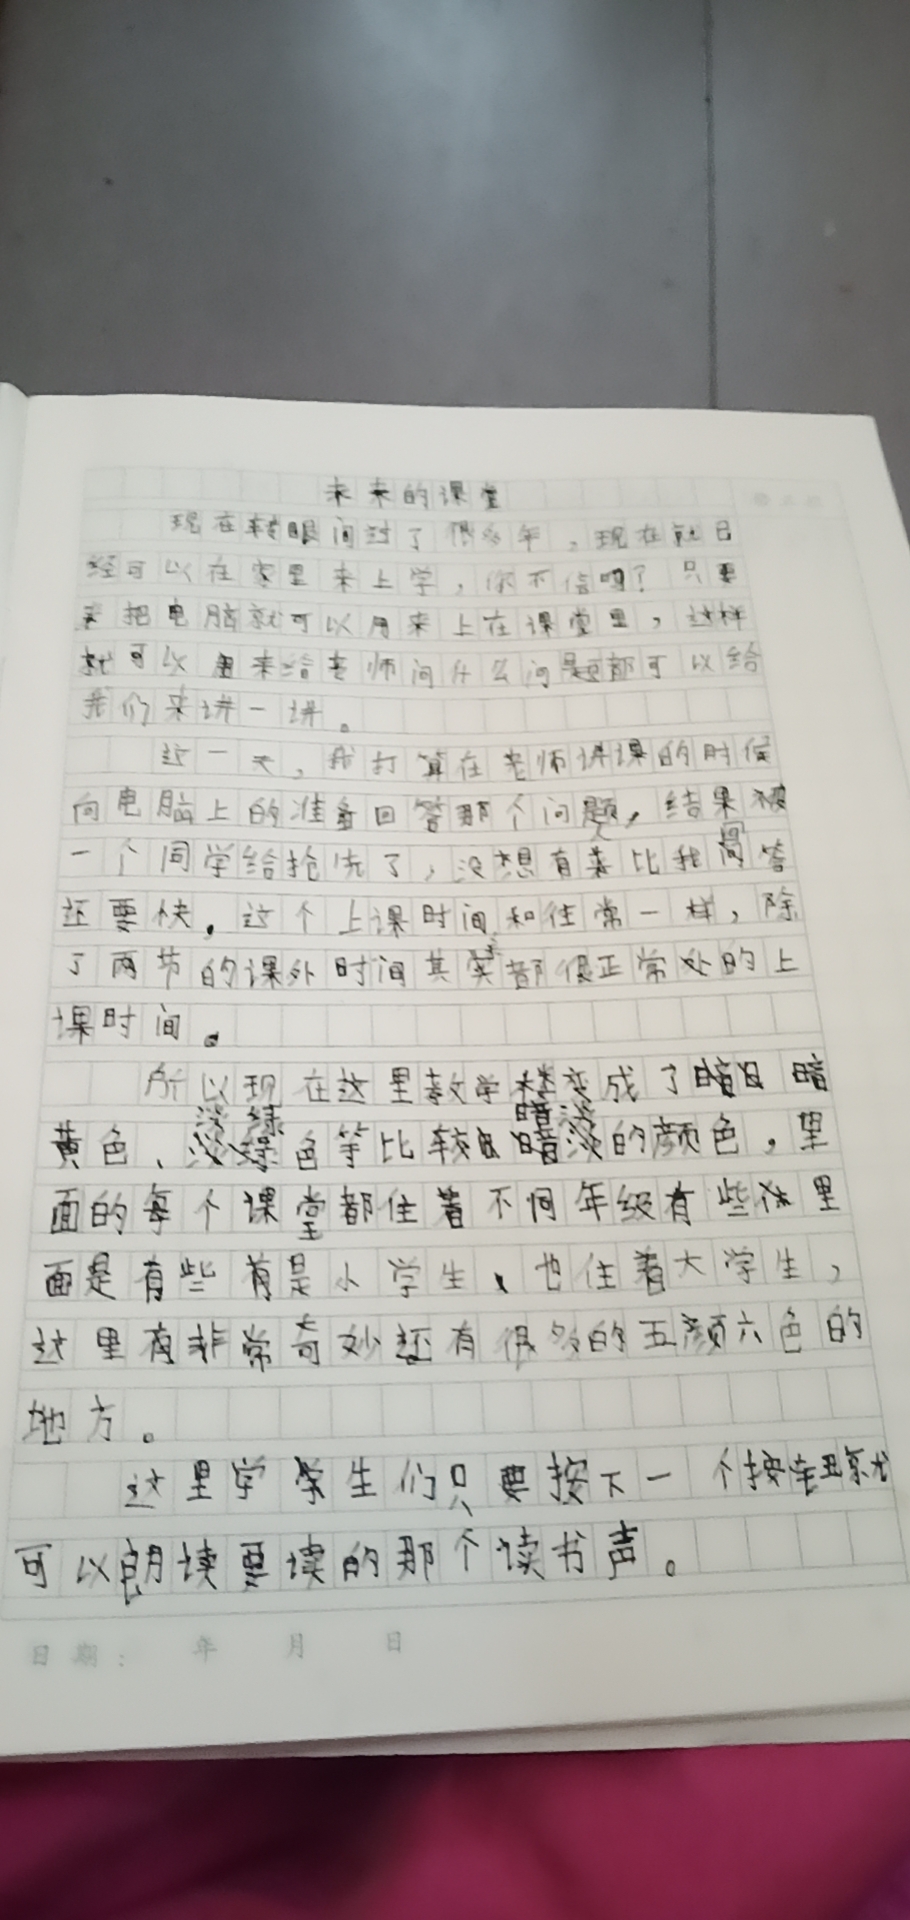 未来的课堂
现在转眼间过了很多年，现在就已
经可以在家里来上学，你不信吗？只要
来把电脑就可以用来上在课堂里，这样
就可以用来给老师问什么问题都可以给
我们来讲一讲。
这一天，我打算在老师讲课的时候
向电脑上的准备回答那个问题，结果被
一个同学给抢先了，没想有人来比我回答
还要快，这个上课时间和往常一样，除
了两节的课外时间其实都很正常处的上
课时间。
所以现在这里教学楼变成了暗 暗
黄色、淡绿色等比较 暗淡的颜色，里
面的每个课堂都住着不同年级有些 里
面是有些有是小学生、也住着大学生，
这里有非常奇妙还有很多的五颜六色的
地方。
这里学学生们只要按下一个按钮就
可以朗读要读的那个读书声。
日期： 年 月 日